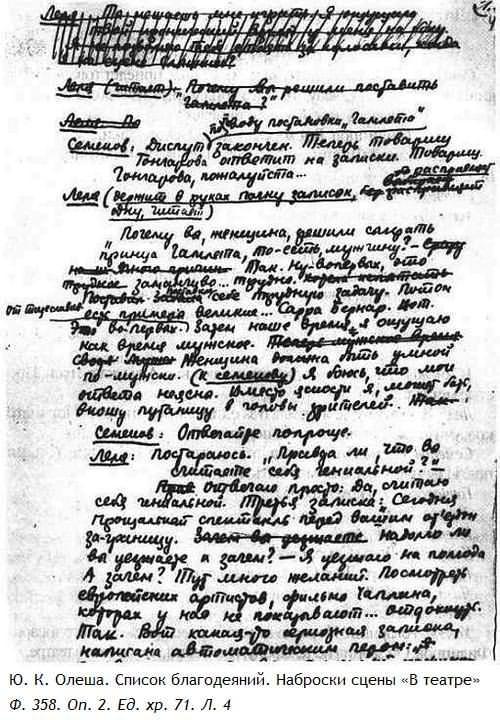 Леля
Леля (читает). „Почему вы решили поставить
"Гамлета?"
по поводу постановки „Гамлета"
Семенов: Диспут закончен. Теперь товарищ
Гончарова ответит на записки. Товарищ
Гончарова, пожалуйста...
Леля (держит в руках пачку записок,
одну, читает)
„Почему вы, женщина, решили сыграть
принца Гамлета, то-есть, мужчину? –
Так. Ну-во первых, это
трудное заманчиво... трудно.
Поставил себе трудную задачу. Потом
есть примеры великие... Сарра Бернар. Вот.
Это во-первых. Затем наше время я ощущаю
как время мужское.
Женщина должна быть умной
по мужски. (К Семенову) Я боюсь, что мои
ответы неясны. Вместо ясности я, может быть,
вношу путаницу в головы зрителей.
Семенов: Отвечайте попроще.
Леля: Постараюсь. „Правда ли, что вы
считаете себя гениальной?" –
Отвечаю просто: Да, считаю
себя гениальной. Третья записка: Сегодня
прощальный спектакль перед вашим от'ездом
за-границу. надолго ли
вы уезжаете и зачем? – Я уезжаю на полгода
А зачем? Тут много желаний. Посмотреть
европейских артистов, фильмы Чаплина,
которых у нас не показывают... отдохнуть.
Так. Вот какая-то серьезная записка,
написана автоматическим пером:
Ю. К. Олеша. Список благодеяний. Наброски сцены «В театре»
Ф. 358. Оп. 2. Ед. хр. 71. Л. 4